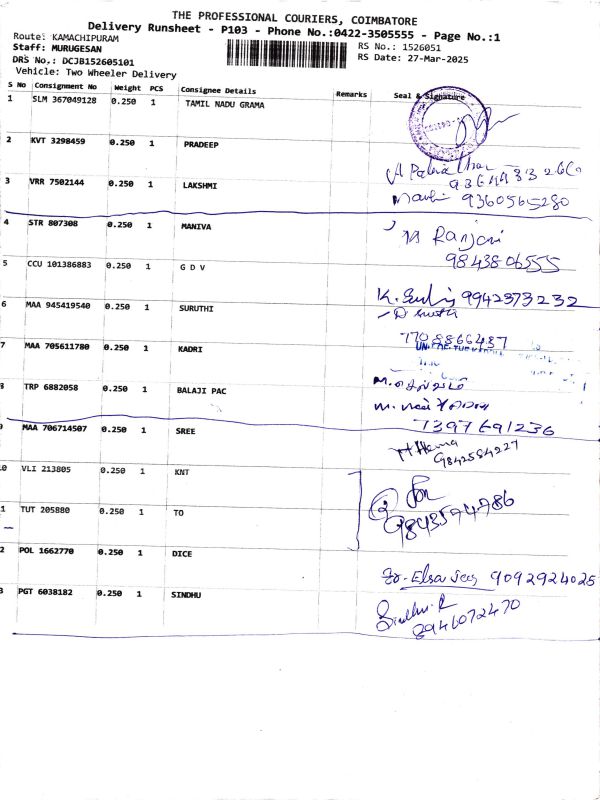 THE PROFESSIONAL COURIERS, COIMBATORE
Delivery Runsheet - P103 - Phone No.:0422-3505555 - Page No.:1
Route: KAMACHIPURAM
Staff: MURUGESAN
RS No.: 1526051
DRS No.: DCJB152605101
RS Date: 27-Mar-2025
Vehicle: Two Wheeler Delivery
S No Consignment No Weight PCS Consignee Details Remarks Seal & Signature
1 SLM 367049128 0.250 1 TAMIL NADU GRAMA
2 KVT 3298459 0.250 1 PRADEEP
3 VRR 7502144 0.250 1 LAKSHMI
9360565280
4 STR 807308 0.250 1 MANIVA
M Ranjani
9843806555
5 CCU 101386883 0.250 1 G D V
9942373232
6 MAA 945419540 0.250 1 SURUTHI
7708866487
7 MAA 705611780 0.250 1 KADRI
8 TRP 6882058 0.250 1 BALAJI PAC
7397691236
9 MAA 706714507 0.250 1 SREE
Hema
9842584227
0 VLI 213805 0.250 1 KNT
1 TUT 205880 0.250 1 TO
9843574786
2 POL 1662770 0.250 1 DICE
9092924025
3 PGT 6038182 0.250 1 SINDHU
Sindhu.R
8946072470